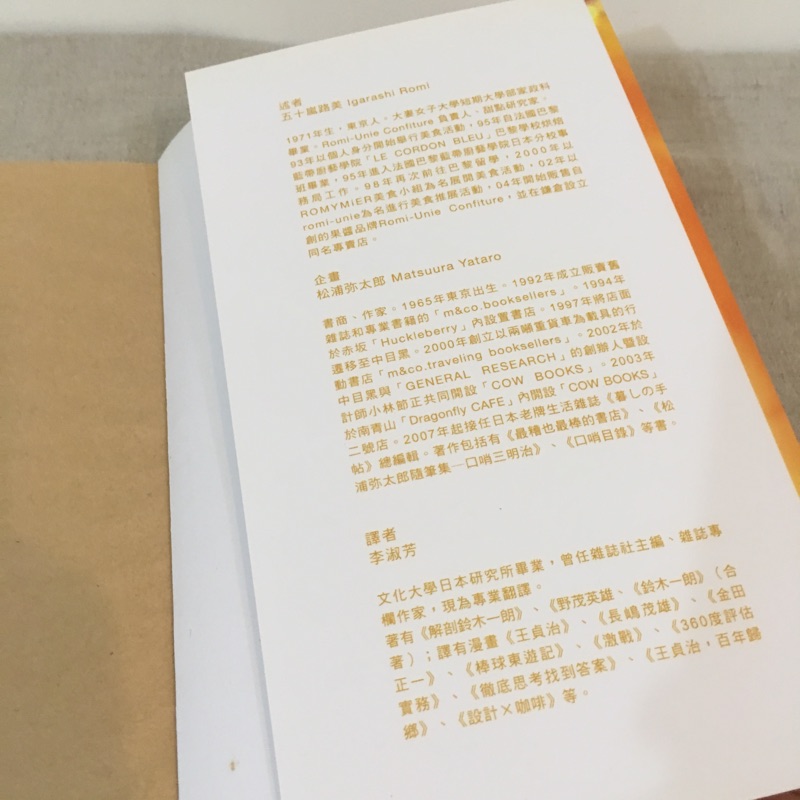 述者
五十嵐路美 Igarashi Romi
1971年生，東京人。大妻女子大學短期大學部家政科
畢業。Romi-Unie Confiture 負責人、甜點研究家。
93年以個人身分開始舉行美食活動，95年自法國巴黎
藍帶廚藝學院「LE CORDON BLEU」巴黎學校烘焙
班畢業，95年進入法國巴黎藍帶廚藝學院日本分校事
務局工作。98年再次前往巴黎留學，2000年以
ROMYMIER美食小組為名展開美食活動，02年以
romi-unie為名進行美食推展活動，04年開始販售自
創的果醬品牌Romi-Unie Confiture，並在鎌倉設立
同名專賣店。
企畫
松浦弥太郎 Matsuura Yataro
書商、作家。1965年東京出生。1992年成立販賣舊
雜誌和專業書籍的「m&co.booksellers」。1994年
於赤坂「Huckleberry」內設置書店。1997年將店面
遷移至中目黑。2000年創立以兩噸重貨車為載具的行
動書店「m&co.traveling booksellers」。2002年於
中目黑與「GENERAL RESEARCH」的創辦人暨設
計師小林節正共同開設「COW BOOKS」。2003年
於南青山「Dragonfly CAFE」內開設「COW BOOKS」
二號店。2007年起接任日本老牌生活雜誌《暮しの手
帖》總編輯。著作包括有《最糟也最棒的書店》、《松
浦弥太郎隨筆集─口哨三明治》、《口哨目錄》等書。
譯者
李淑芳
文化大學日本研究所畢業，曾任雜誌社主編、雜誌專
欄作家，現為專業翻譯。
著有《解剖鈴木一朗》、《野茂英雄、《鈴木一朗》（合
著）；譯有漫畫《王貞治》、《長嶋茂雄》、《金田
正一》、《棒球東遊記》、《激戰》、《360度評估
實務》、《徹底思考找到答案》、《王貞治，百年歸
鄉》、《設計×咖啡》等。